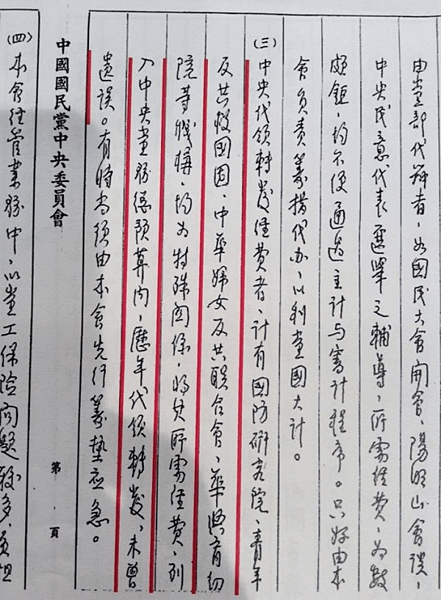 由黨部代辦者，如國民大會開會、陽明山會談、
中央民意代表選舉之輔導，所需經費，為數
頗鉅，均不便通過主計与審計程序。只好由本
會負責籌措代办，以利黨國大計。
(三)中央代領轉發經費者，計有國防研究院、青年
反共救國团、中華婦女反共联合會、華興育幼
院等機構，均为特殊関係，將其所需經費，列
入中央黨務總預算內，歷年代領轉發，未曾
遺误。有時尚須由本會先行籌墊应急。
中國國民黨中央委員會
第 頁
(四)本會經管業務中，以黨工保险問題較多，負担